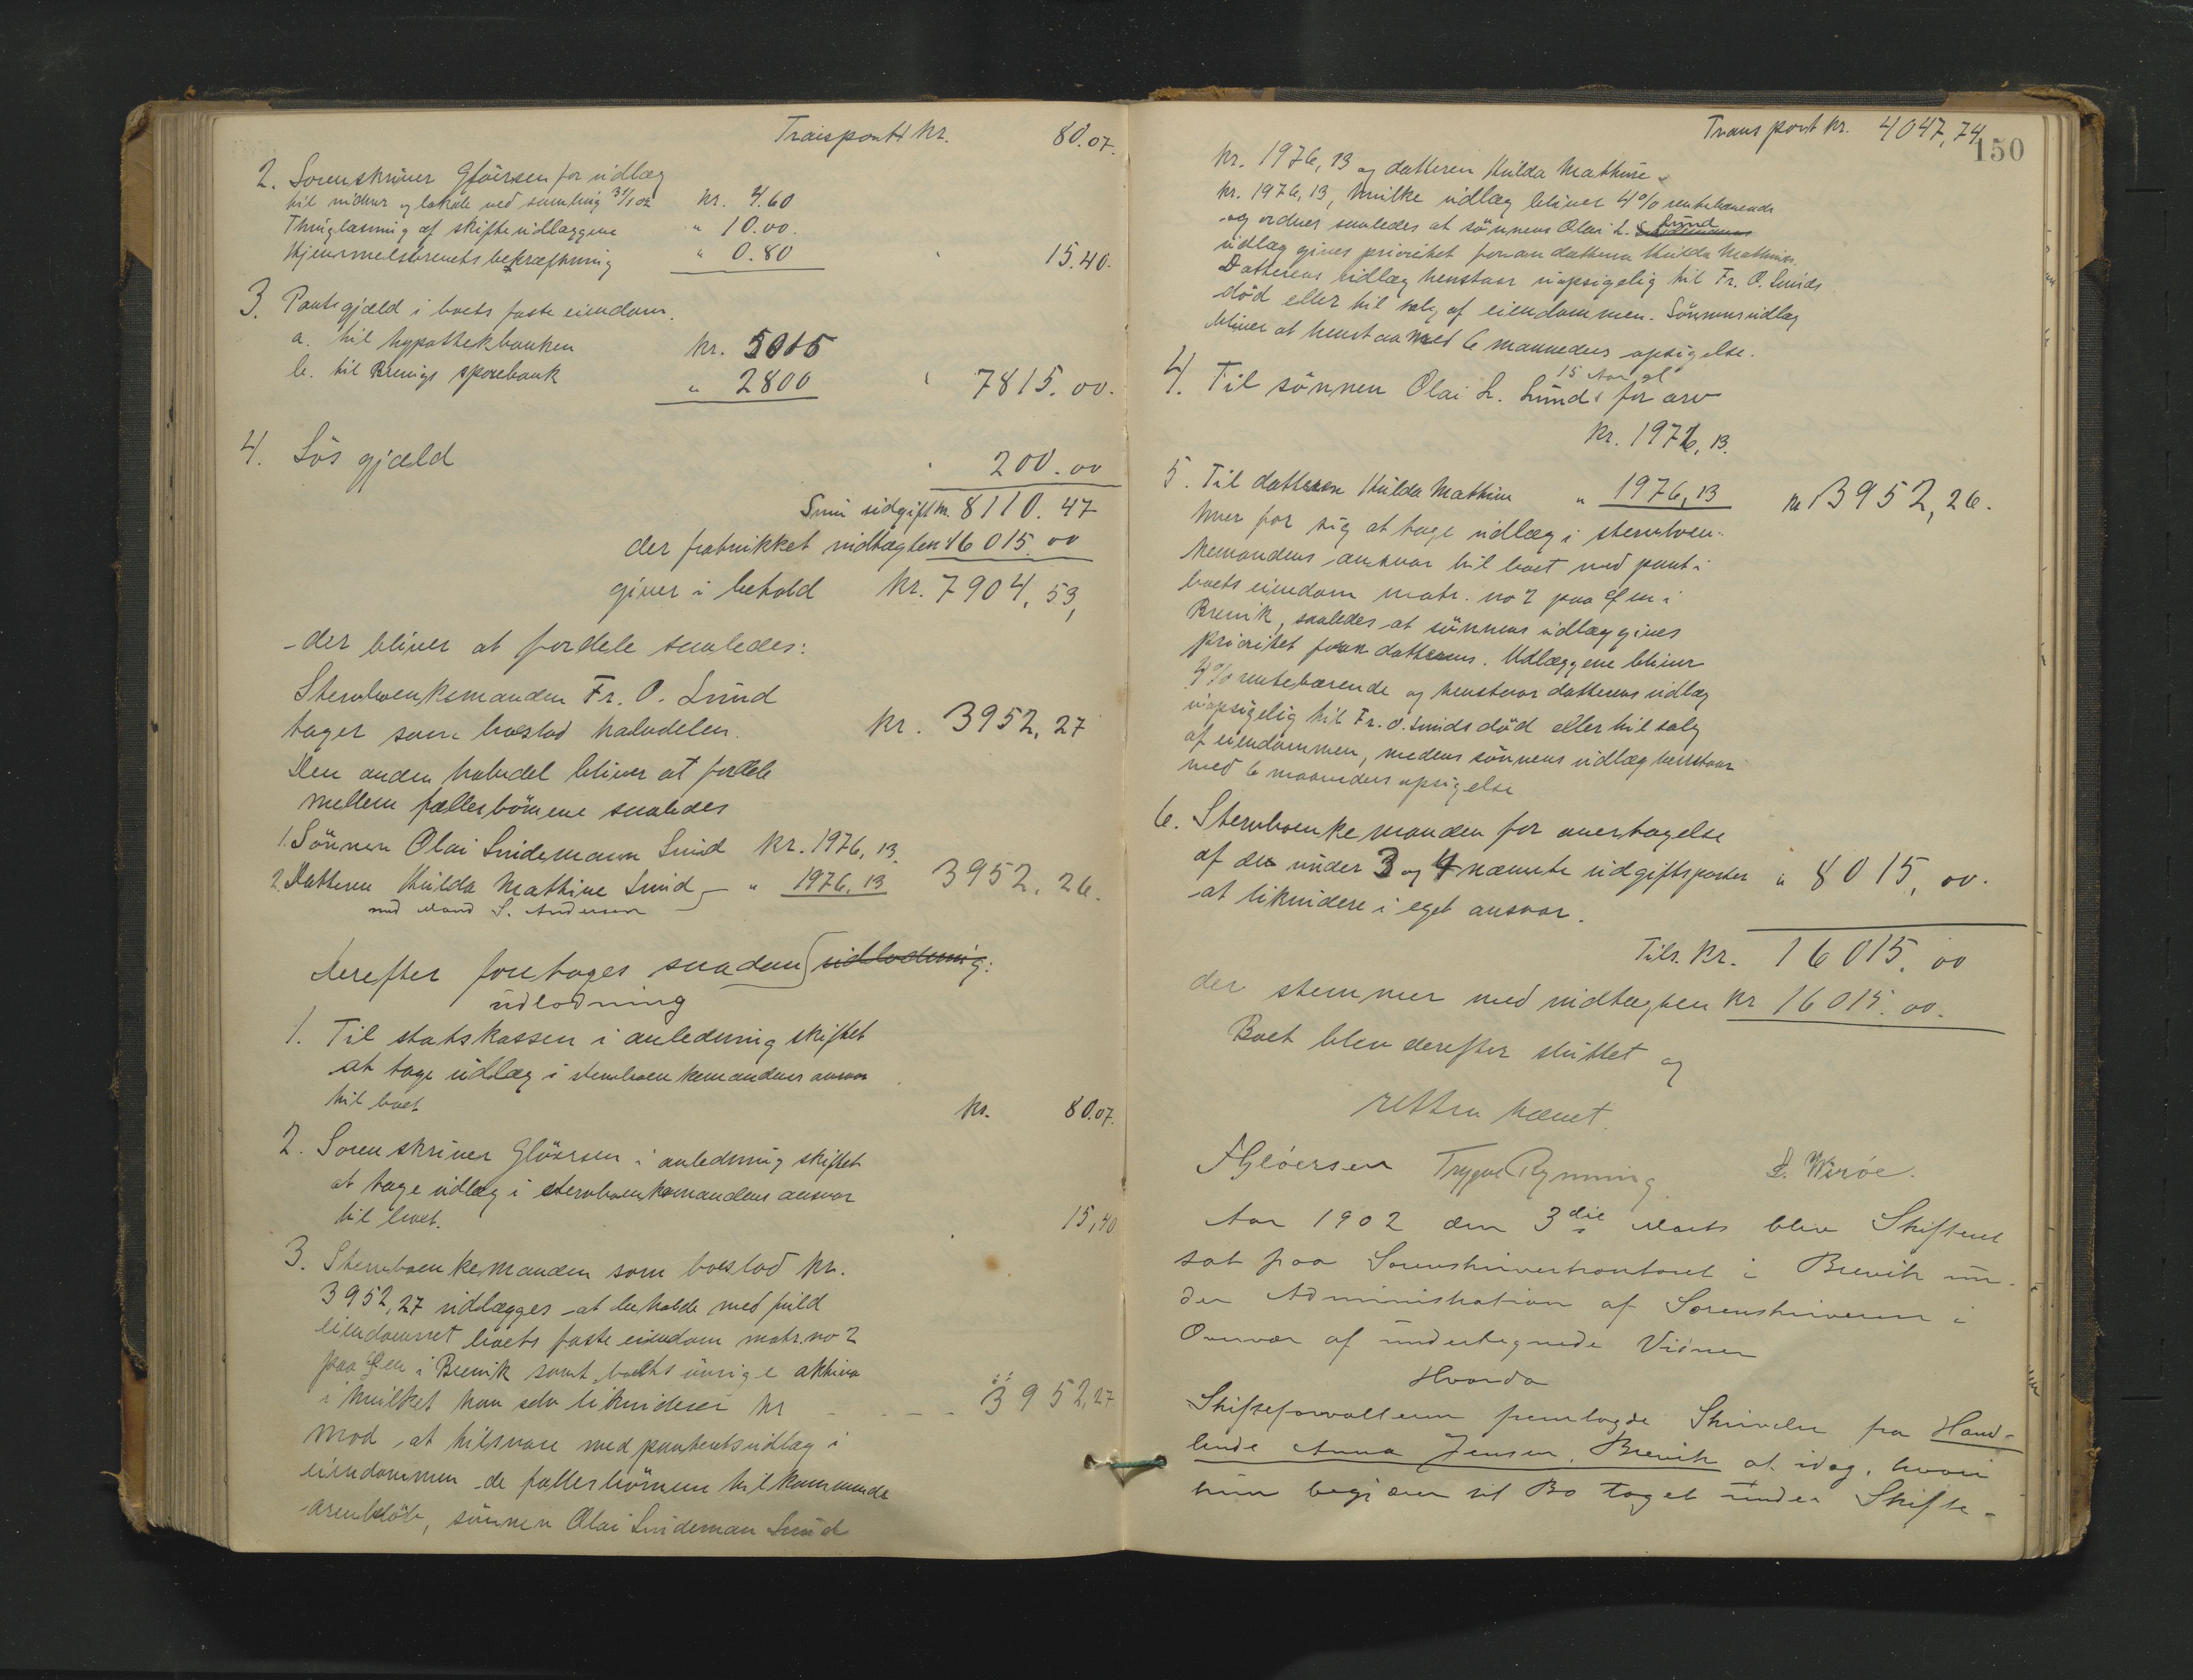 Transport kr. 80.07.
2. Sorenskriver Gløersen for udlæg
til vidner og lokale ved samling 31/1 02 kr. 4.60
Thinglæsning af skifteudlæggene " 10.00.
Hjemmelsbrevets bekræftning " 0.80 " 15.40.
3. Pantegjæld i boets faste eiendom.
a. til hypothekbanken kr. 5015
b. til Brevigs sparebank " 2800 " 7815.00.
4. Løs gjæld " 200.00
Sum udgift kr. 8110.47
der fratrukket indtægten 16015.00
giver i behold kr. 7904,53,
der bliver at fordele saaledes:
Stervboenkemanden Fr. O. Lund
tager som boslod halvdelen. kr. 3952,27
Den anden halvdel bliver at fordele
mellem fællesbørnene saaledes
1. Sønnen Olai Lindemann Lund kr. 1976,13.
2. Datteren Hulda Mathine Lund " 1976,13 3952,26.
med Mand S. Andersen
Derefter foretages saadan udlodning:
udlodning
1. Til statskassen i anledning skiftet
at tage udlæg i stervboenkemandens ansvar
til boet kr. 80.07.
2. Sorenskriver Gløersen i anledning skiftet
at tage udlæg i stervboenkemandens ansvar
til boet. 15,40
3. Stervboenkemanden som boslod kr.
3952,27 udlægges at beholde med fuld
eiendomsret boets faste eiendom matr. no 2
paa Øen i Brevik samt boets øvrige aktiva
i hvilket han selv likviderer kr 3952,27
mod at tilsvare med panteretsudlæg i
eiendommen de fællesbørnene tilkommende
arvebeløb, sønnen Olai Lindeman Lund
Transport kr. 4047,74
150
kr. 1976,13 og datteren Hulda Mathine
kr. 1976,13, hvilke udlæg bliver 4% rentebærende
og ordnes saaledes at sønnens Olai L. Lund
udlæg gives prioritet foran datteren Hulda Mathines.
Datterens udlæg henstaar uopsigelig til Fr. O. Lunds
død eller til salg af eiendommen. Sønnens udlæg
bliver at henstaa med 6 maaneders opsigelse.
15 Aar gl
4. Til sønnen Olai L. Lund for arv
kr. 1976,13.
5. Til datteren Hulda Mathine " 1976,13 kr 3952,26.
hver for sig at tage udlæg i stervboen-
kemandens ansvar til boet med pant i
boets eiendom matr. no 2 paa Øen i
Brevik, saaledes at sønnens udlæg gives
prioritet foran datterens. Udlæggene bliver
4% rentebærende og henstaar datterens udlæg
uopsigelig til Fr. O. Lunds død eller til salg
af eiendommen, medens sønnens udlæg henstaar
med 6 maaneders opsigelse
6. Stervboenkemanden for overtagelse
af de under 3 og 4 nævnte udgiftsposter " 8015,00.
at likvidere i eget ansvar.
Tils. kr. 16015.00
der stemmer med indtægten kr 16015.00.
Boet blev derefter sluttet og
retten hævet.
FGløersen Trygve Rynning L. Wirøe.
Aar 1902 den 3die Marts blev Skifteret
sat paa Sorenskriverkontoret i Brevik un-
der Administration af Sorenskriveren i
Overvær af undertegnede Vidner
Hvorda
Skifteforvalteren fremlagde Skrivelse fra Hand-
lende Anna Jensen, Brevik af idag, hvori
hun begjærer sit Bo taget under Skifte-